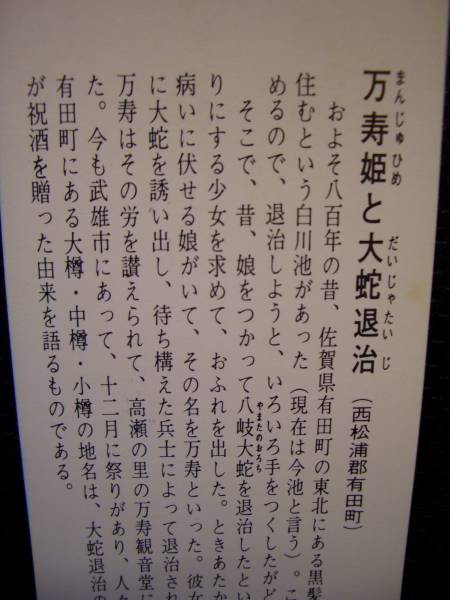 まんじゅひめ だいじゃたいじ
万寿姫と大蛇退治(西松浦郡有田町)
およそ八百年の昔、佐賀県有田町の東北にある黒髪
住むという白川池があった(現在は今池と言う)。こ
めるので、退治しようと、いろいろ手をつくしたがど
やまたのおろち
そこで、昔、娘をつかって八岐大蛇を退治したとい
りにする少女を求めて、おふれを出した。ときあたか
病いに伏せる娘がいて、その名を万寿といった。彼女
に大蛇を誘い出し、待ち構えた兵士によって退治され
万寿はその労を讃えられて、高瀬の里の万寿観音堂に
た。今も武雄市にあって、十二月に祭りがあり、人々
有田町にある大樽・中樽・小樽の地名は、大蛇退治の
が祝酒を贈った由来を語るものである。